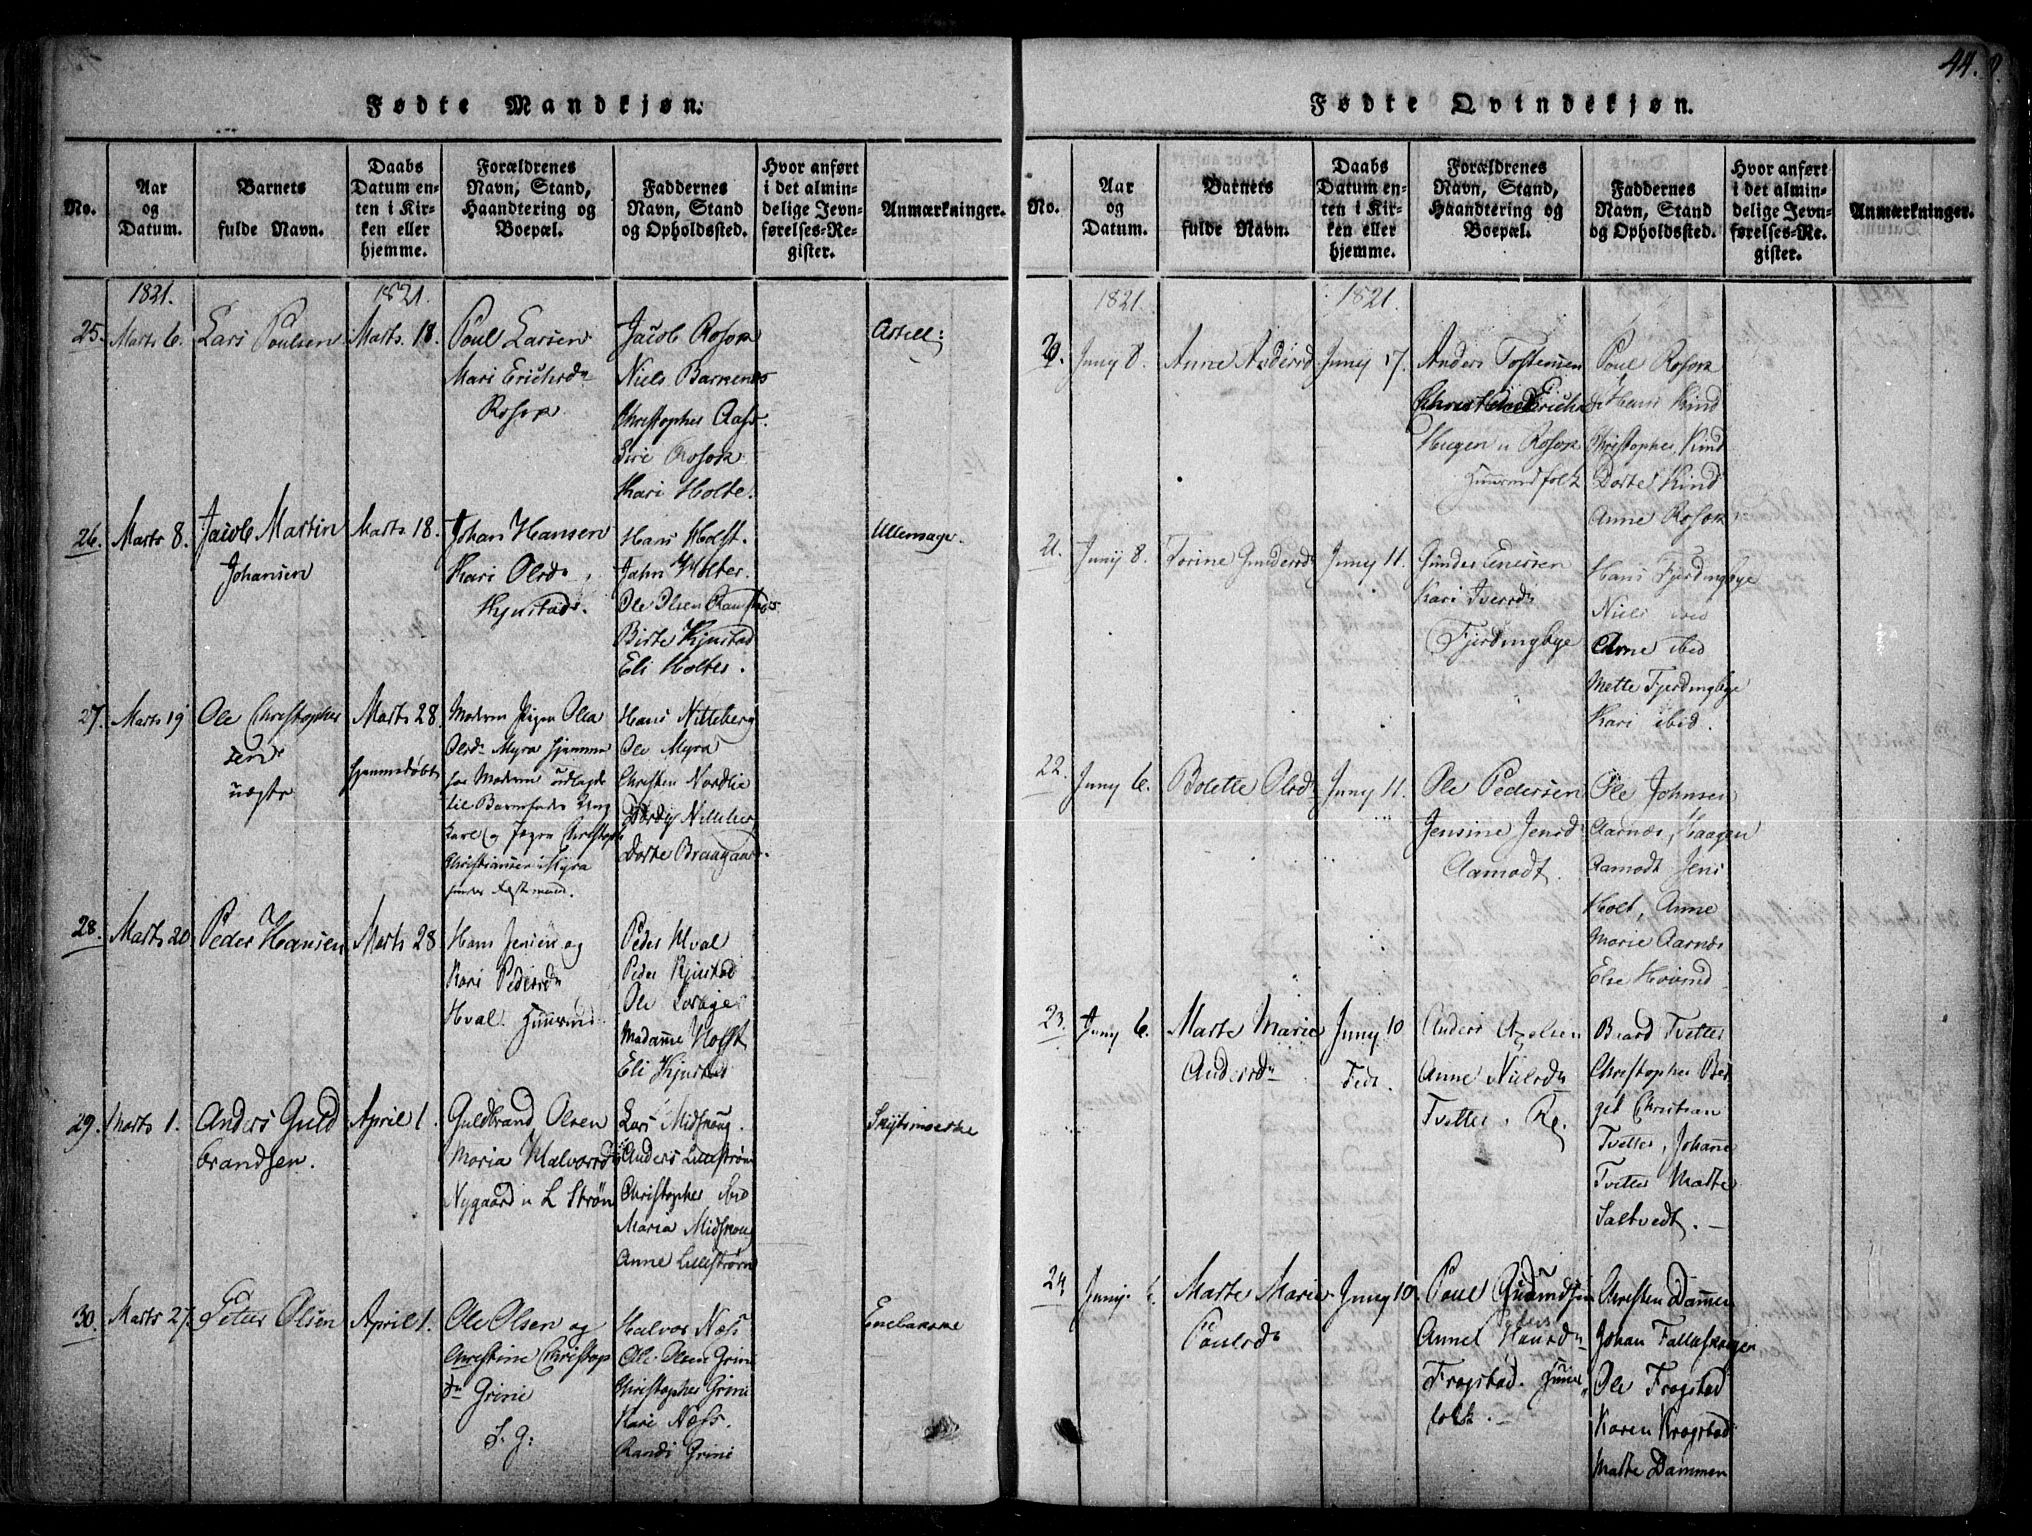 44.
Fødte Mandkjøn.
No.
Aar
og
Datum.
Barnets
fulde Navn.
Daabs
Datum en-
ten i Kir-
ken eller
hjemme.
Forældrenes
Navn, Stand,
Haandtering og
Boepæl.
Faddernes
Navn, Stand
og Opholdssted.
Hvor anført
i det almin-
delige Jevn-
førelses-Re-
gister.
Anmærkninger.
1821.
1821.
25.
Marts 6.
Lars Poulsen
Marts. 18.
Poul Larsen
Mari Erichsdr
Jacob
Niels
Christopher Aas
Siri
Kari Holte.
26.
Marts 8.
Jacob Martin
Johansen
Marts. 18.
Johan Hansen
Kari Olsdr
Kjustad.
Hans Holst.
Jahn Holter.
Ole Olsen
Birte Kjustad
Eli Holter.
Ullensager.
27.
Marts 19
Ole Christopher
sen
uægte
Marts 28
hjemmedøbt
Moderen Pigen Olea
Olsdr Myra hjemme
hos Moderen udlagde
til Barnefader Ung
Karl og
Christiansen i Myra
Hans Nitteberg
Ole Myra
Christen Nordlie
Nitteberg
Dorte Braagaard.
28.
Marts 20
Peder Hansen
Marts 28
Hans Jensen og
Kari Pedersdr
Hval. Huusmd.
Peder Hval
Peder Kjustad
Ole
Madame Holst
Eli Kjustad
29.
Marts 1.
Anders Guld
brandsen.
April 1.
Guldbrand Olsen
Maria Halvorsdr
Nygaard u L Strøm
Lars Midskoug.
Anders Lillestrøm
Christopher ibid
Maria Midskoug
Anne Lillestrøm
30.
Marts 27
Peter Olsen
April 1.
Ole Olsen og
Christine Christop
dr Grini
S. G:
Halvor Næs
Ole Olsen Grini
Christopher Grini
Kari Næss.
Randi Grini
Fødte Qvindekjøn.
No.
Aar
og
Datum.
Barnets
fulde Navn.
Daabs
Datum en-
ten i Kir-
ken eller
hjemme.
Forældrenes
Navn, Stand,
Haandtering og
Boepæl.
Faddernes
Navn, Stand
og Opholdssted.
Hvor anført
i det almin-
delige Jevn-
førelses-Re-
gister.
Anmærkninger.
1821.
1821
Juny 8.
Anne Andersd
Junij 17.
Anders Tostensen
Huusmdfolk
Poul
Hans Kind
Christopher Kind
Dorte Kind
Anne
21.
Junij 8.
Torine Gundersdr
Juny 11.
Gunder Enersen
Kari Iversdr
Fjerdingbye
Hans Fjerdingbye
Niels ibid
Arne ibid
Mette Fjerdingbye
Kari ibid.
22.
Juny 6.
Bolette Olsdr
Juny 11.
Ole Pedersen
Jensine Jensd
Aamodt.
Ole Johnsen
Aarnæs, Haagen
Aamodt Jens
Holt, Anne
Marie Aarnæs
Else Hovind
23.
Juny 6.
Marte Marie
Andersdr
Juny 10
Anders Axelsen
Anne Nielsdr
Tvetter.
Christopher Ber
get Christian
Tvetter, Johanne
Tvetter Marte
Saltvedt.
24
Juny. 6.
Marte Marie
Poulsdr
Juny 10
Poul Gudmundsen
Anne Hansdr
Frogstad. Huus
folk.
Christen Dammen
Johan
Ole Frogstad
Karen Krogstad
Marte Dammen